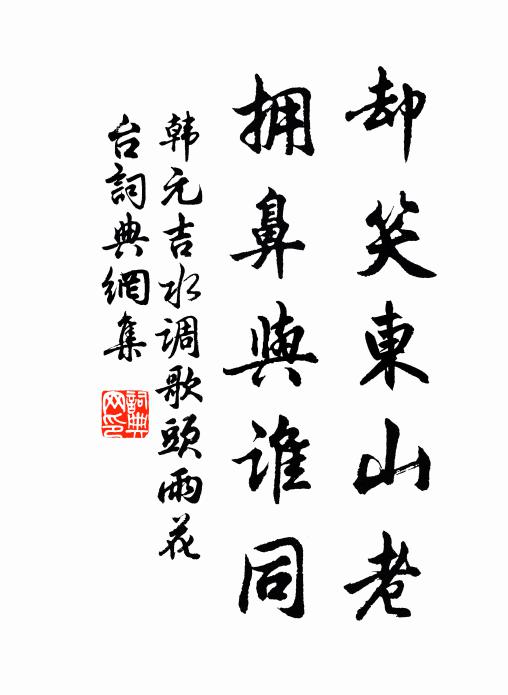 却笑東山老
拥鼻與谁同
韩元吉水调歌頭雨花
台詞典網集
詞典
网印